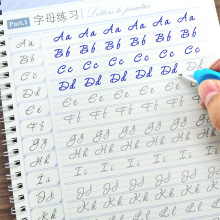 Part.1 字母练习 Letters to practice
Aa Aa Aa Aa Aa Aa
Bb Bb Bb Bb Bb Bb
Cc Cc Cc Cc Cc Cc Cc
Dd Dd Dd Dd Dd Dd Dd
Ee Ee Ee Ee Ee
Ff Ff Ff Ff Ff Ff
Gg Gg Gg Gg Gg Gg
Hh Hh Hh Hh Hh Hh
Ii Ii Ii Ii Ii Ii
Jj Jj Jj Jj Jj
Kk Kk Kk Kk Kk